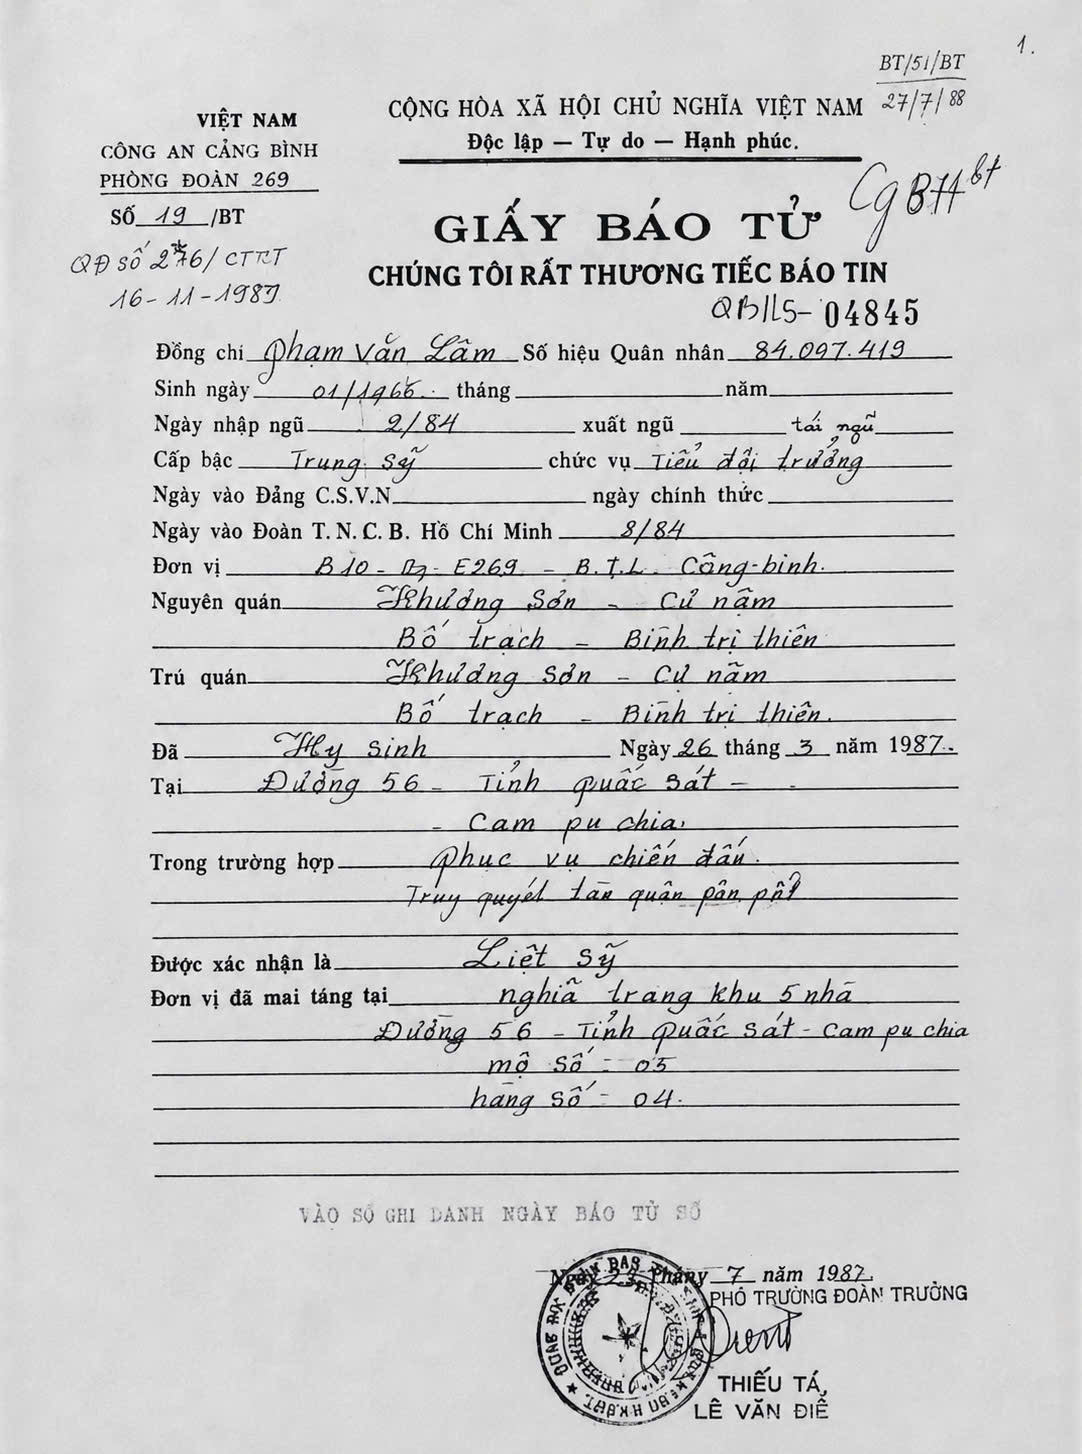 1.
BT/51/BT
27/7/88
VIỆT NAM
CÔNG AN CẢNG BÌNH
PHÒNG ĐOÀN 269
SỐ 19 /BT
QĐ số 276/ CTRT
16-11-1987
CỘNG HÒA XÃ HỘI CHỦ NGHĨA VIỆT NAM
Độc lập — Tự do — Hạnh phúc.
GIẤY BÁO TỬ
CHÚNG TÔI RẤT THƯƠNG TIẾC BÁO TIN
04845
Đồng chí Phạm Văn Lâm Số hiệu Quân nhân 84.097.419
Sinh ngày 01/1966. tháng năm
Ngày nhập ngũ 2/84 xuất ngũ tái ngũ
Cấp bậc Trung sỹ chức vụ Tiểu đội trưởng
Ngày vào Đảng C.S.V.N ngày chính thức
Ngày vào Đoàn T. N. C. B. Hồ Chí Minh 8/84
Đơn vị B10 - E269 - B.T.L. Công-binh.
Nguyên quán Khương Sơn - Cự nậm
Bố trạch - Bình trị thiên
Trú quán Khương Sơn - Cự nẫm
Bố trạch - Bình trị thiên.
Đã Hy sinh Ngày 26 tháng 3 năm 1987.
Tại Đường 56 - Tỉnh Quấc Sát -
- Cam pu chia.
Trong trường hợp phục vụ chiến đấu.
Truy quyét tàn quân pôn pốt
Được xác nhận là Liệt sỹ
Đơn vị đã mai táng tại nghiã trang khu 5 nhà
Đường 56 - Tỉnh Quấc Sát - Cam pu chia
mộ Số - 05
hàng Số - 04.
VÀO SỔ GHI DANH NGÀY BÁO TỬ SỐ
7 năm 1987.
PHÓ TRƯỜNG ĐOÀN TRƯỜNG
THIẾU TÁ,
LÊ VĂN ĐIỀ